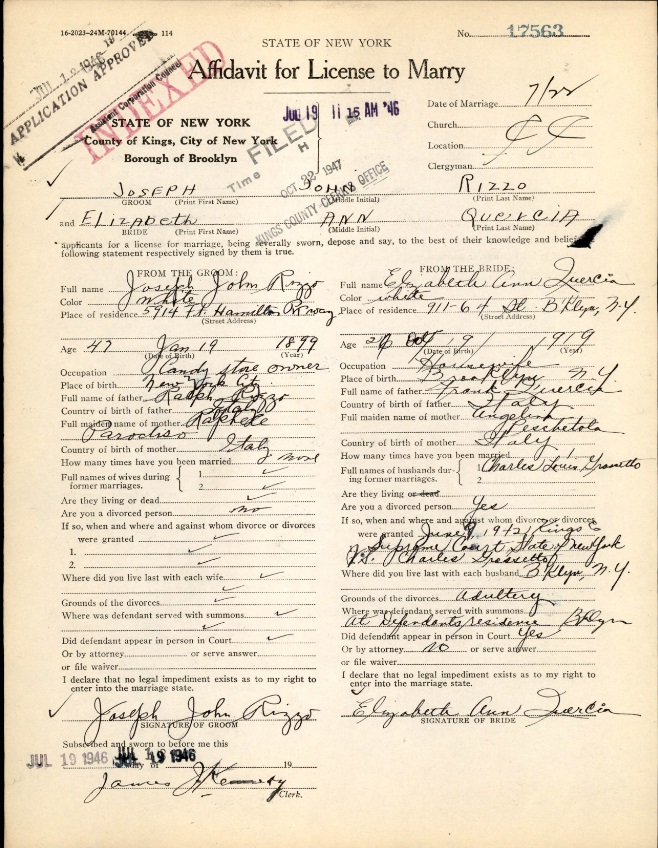 16-2023-24M-70144 114
No. 17563
STATE OF NEW YORK
Affidavit for License to Marry
APPLICATION APPROVED
Assistant Corporation Counsel
INDEXED
JUL 19 11 15 AM '46
Date of Marriage 7/22
STATE OF NEW YORK
County of Kings, City of New York
Borough of Brooklyn
Church
Location
Clergyman
FILED
Time H
OCT 22 1947
KINGS COUNTY CLERK'S OFFICE
JOSEPH JOHN RIZZO
GROOM (Print First Name) (Middle Initial) (Print Last Name)
and ELIZABETH ANN QUERCIA
BRIDE (Print First Name) (Middle Initial) (Print Last Name)
applicants for a license for marriage, being severally sworn, depose and say, to the best of their knowledge and belief
following statement respectively signed by them is true.
FROM THE GROOM:
Full name Joseph John Rizzo
Color white
Place of residence 5914 Ft. Hamilton Pkway
(Street Address)
Age 47 Jan 19 1899
(Date of Birth) (Year)
Occupation Candy store owner
Place of birth New York City
Full name of father Ralph Rizzo
Country of birth of father Italy
Full maiden name of mother
Country of birth of mother Italy
How many times have you been married none
Full names of wives during former marriages. 1.
2.
Are they living or dead
Are you a divorced person no
If so, when and where and against whom divorce or divorces
were granted
1.
2.
Where did you live last with each wife
Grounds of the divorces
Where was defendant served with summons
Did defendant appear in person in Court
Or by attorney or serve answer
or file waiver
I declare that no legal impediment exists as to my right to
enter into the marriage state.
Joseph John Rizzo
SIGNATURE OF GROOM
Subscribed and sworn to before me this
JUL 19 1946 JUL 19 1946 day of 19
James J Kennedy
Clerk.
FROM THE BRIDE:
Full name Elizabeth Ann Quercia
Color white
Place of residence 911-64 St. BKlyn, N.Y.
(Street Address)
Age 26 Oct 19 1919
(Date of Birth) (Year)
Occupation Housewife
Place of birth Brooklyn N.Y.
Full name of father Frank Quercia
Country of birth of father Italy
Full maiden name of mother Angelina
Country of birth of mother Italy
How many times have you been married 1
Full names of husbands during former marriages. 1. Charles Louis
2.
Are they living or dead
Are you a divorced person Yes
If so, when and where and against whom divorce or divorces
were granted June 9, 1942, Kings Co
Supreme Court State of New York
vs. Charles
Where did you live last with each husband BKlyn, N.Y.
Grounds of the divorces adultery
Where was defendant served with summons
At Defendants residence Bklyn
Did defendant appear in person in Court Yes
Or by attorney No or serve answer
or file waiver
I declare that no legal impediment exists as to my right to
enter into the marriage state.
Elizabeth Ann Quercia
SIGNATURE OF BRIDE